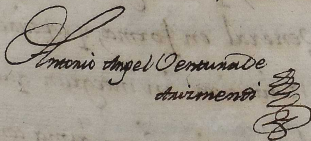 Antonio Angel Ventura de
Aurimendi